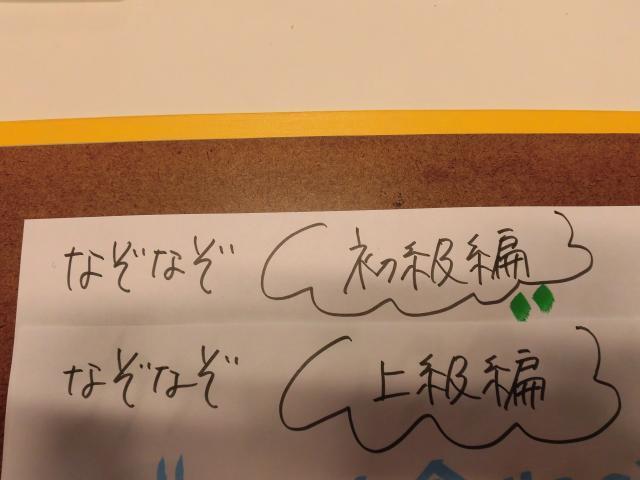 なぞなぞ 初級編
なぞなぞ 上級編